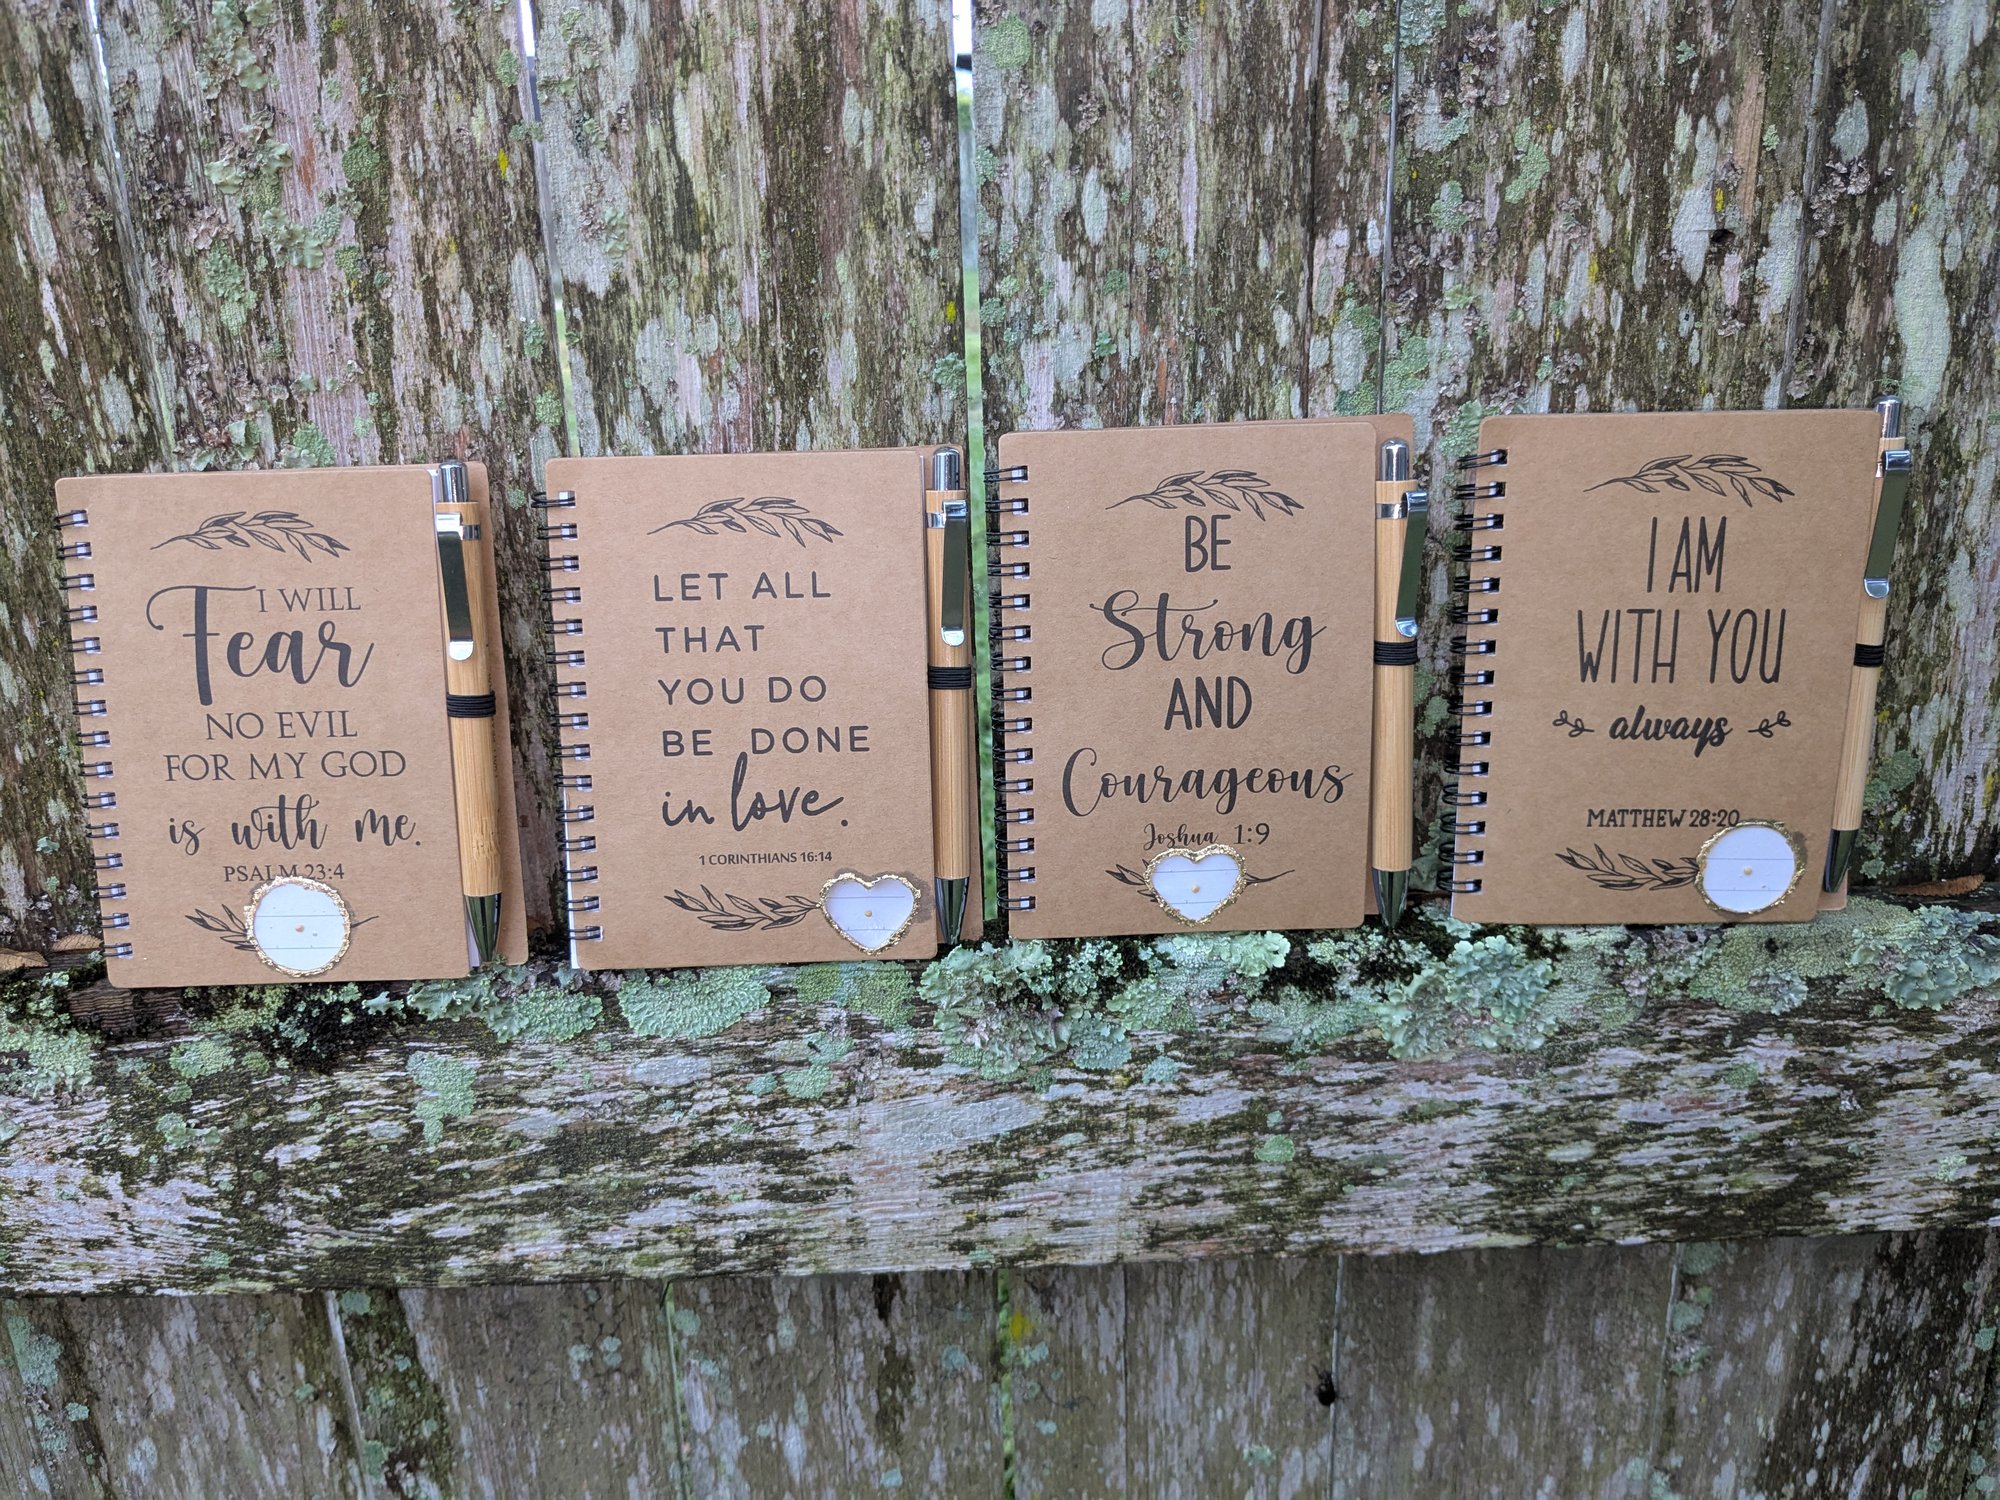 I WILL
Fear
NO EVIL
FOR MY GOD
is with me.
PSALM 23:4
LET ALL
THAT
YOU DO
BE DONE
in love.
1 CORINTHIANS 16:14
BE
Strong
AND
Courageous
Joshua 1:9
I AM
WITH YOU
always
MATTHEW 28:20